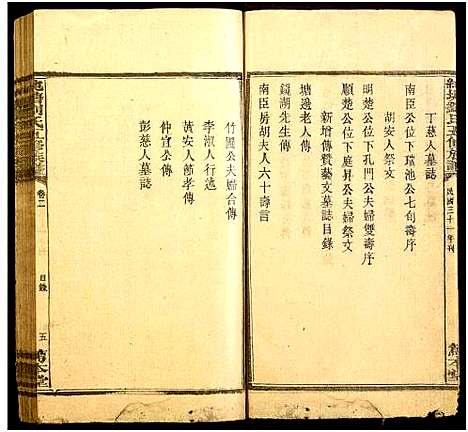 民國三十一年刊
萬本堂
丁慈人墓誌
南臣公下瑞池公七旬壽序
胡安人祭文
明楚公位下孔門公夫婦雙壽序
順楚公位下庭昇公夫婦祭文
新增傳贊藝文墓誌目錄
塘邊老人傳
鏡湖先生傳
南臣房胡夫人六十壽言
竹園公夫婦合傳
李淑人行述
黃安人節孝傳
仲宜公傳
彭慈人墓誌
卷二
目錄
五
萬本堂